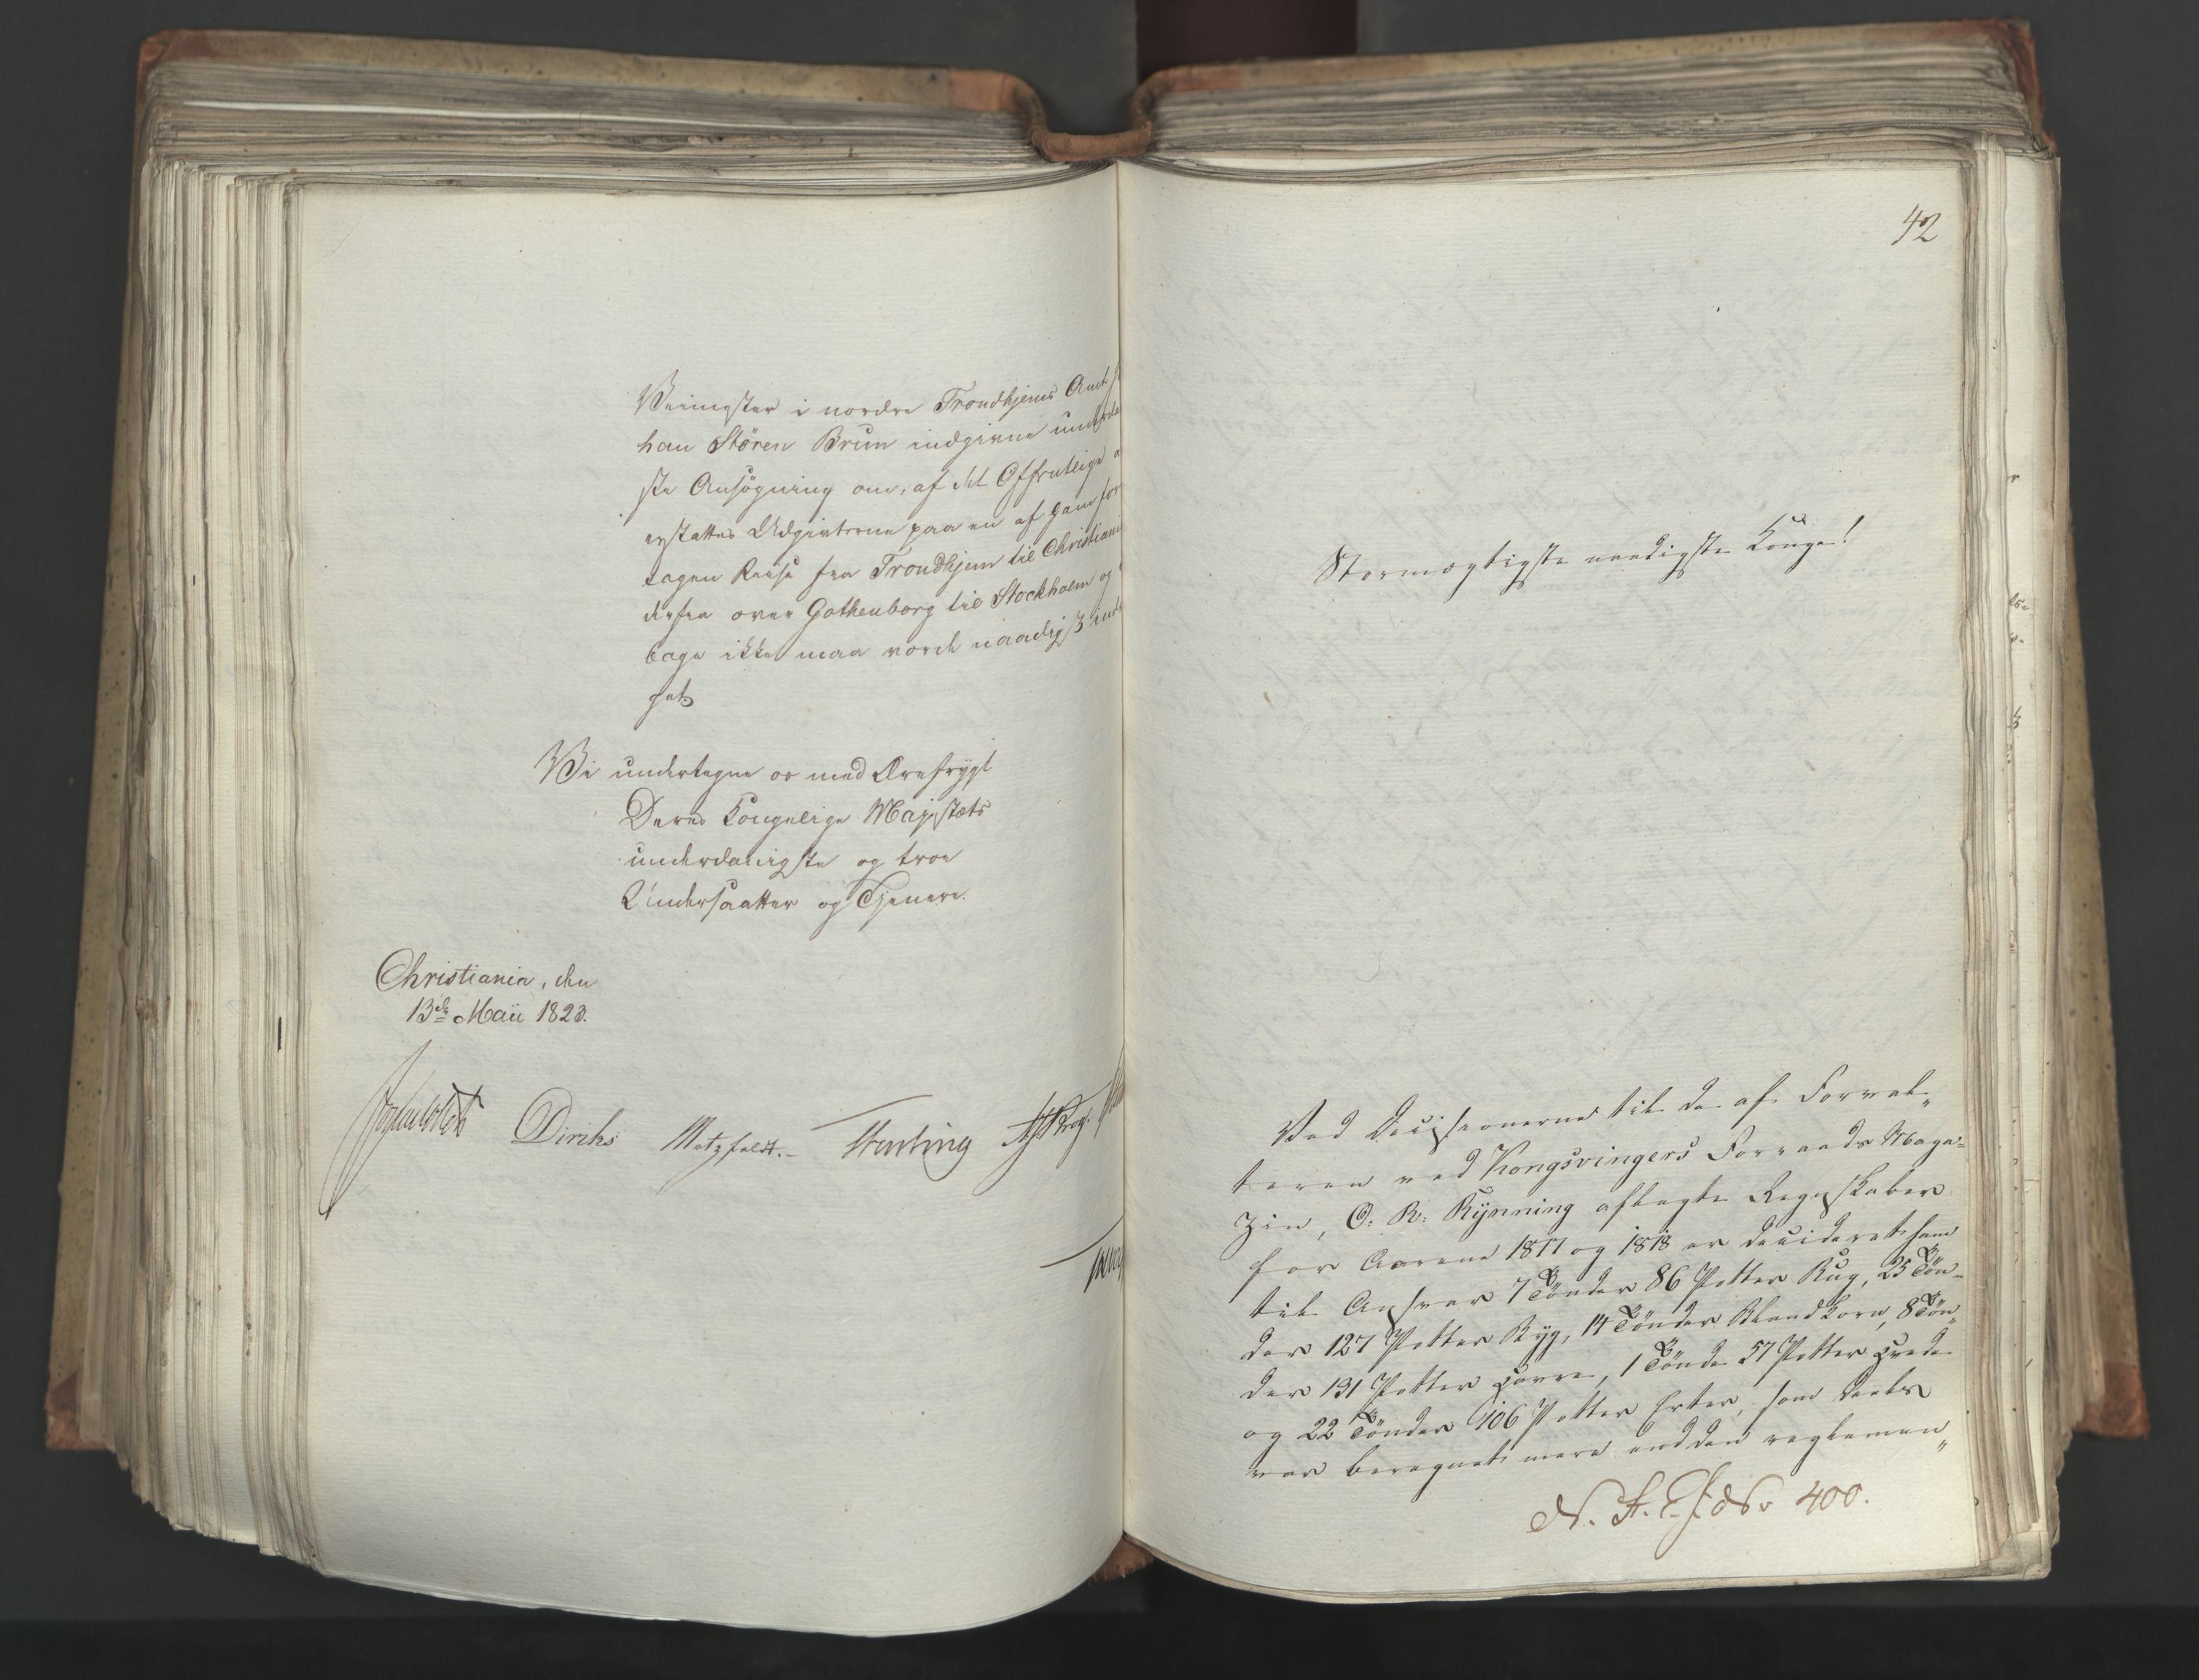 Veimester i nordre Trondhjems Amt
han Stören Brun indgivne underda
ste Ansøgning om, af det Offentlige
erstattes Udgivterne paa en af ham fore
tagen Reise fra Trondhjem til Christiania
derfra over Gothenborg til Stockholm og
bage ikke maa vorde naadigst
get.
Vi undertegne os med Ærefrygt
Deres Kongelige Majestæts
underdanigste og troe
Undersaatter og Tjenere.
Christiania, den
13de Maii 1823.
Diriks Motzfeldt. Krog
42
Stormægtigste naadigste Konge!
Ved Decisionerne til de af Forval„
teren ved Kongsvingers Forraads Maga=
zin, O. R. Kynning aflagte Regnskaber
for Aarene 1817 og 1818 er decideret ham
til Ansvar 7 Tønder 86 Potter Rug, 25 Tøn=
der 127 Potter Byg, 14 Tønder Blandkorn, 8 Tøn„
der 131 Potter Havre, 1 Tønde 57 Potter Hvede
og 22 Tønder 106 Potter Erter, som deels
var beregnet mere end den reglemen„
400.